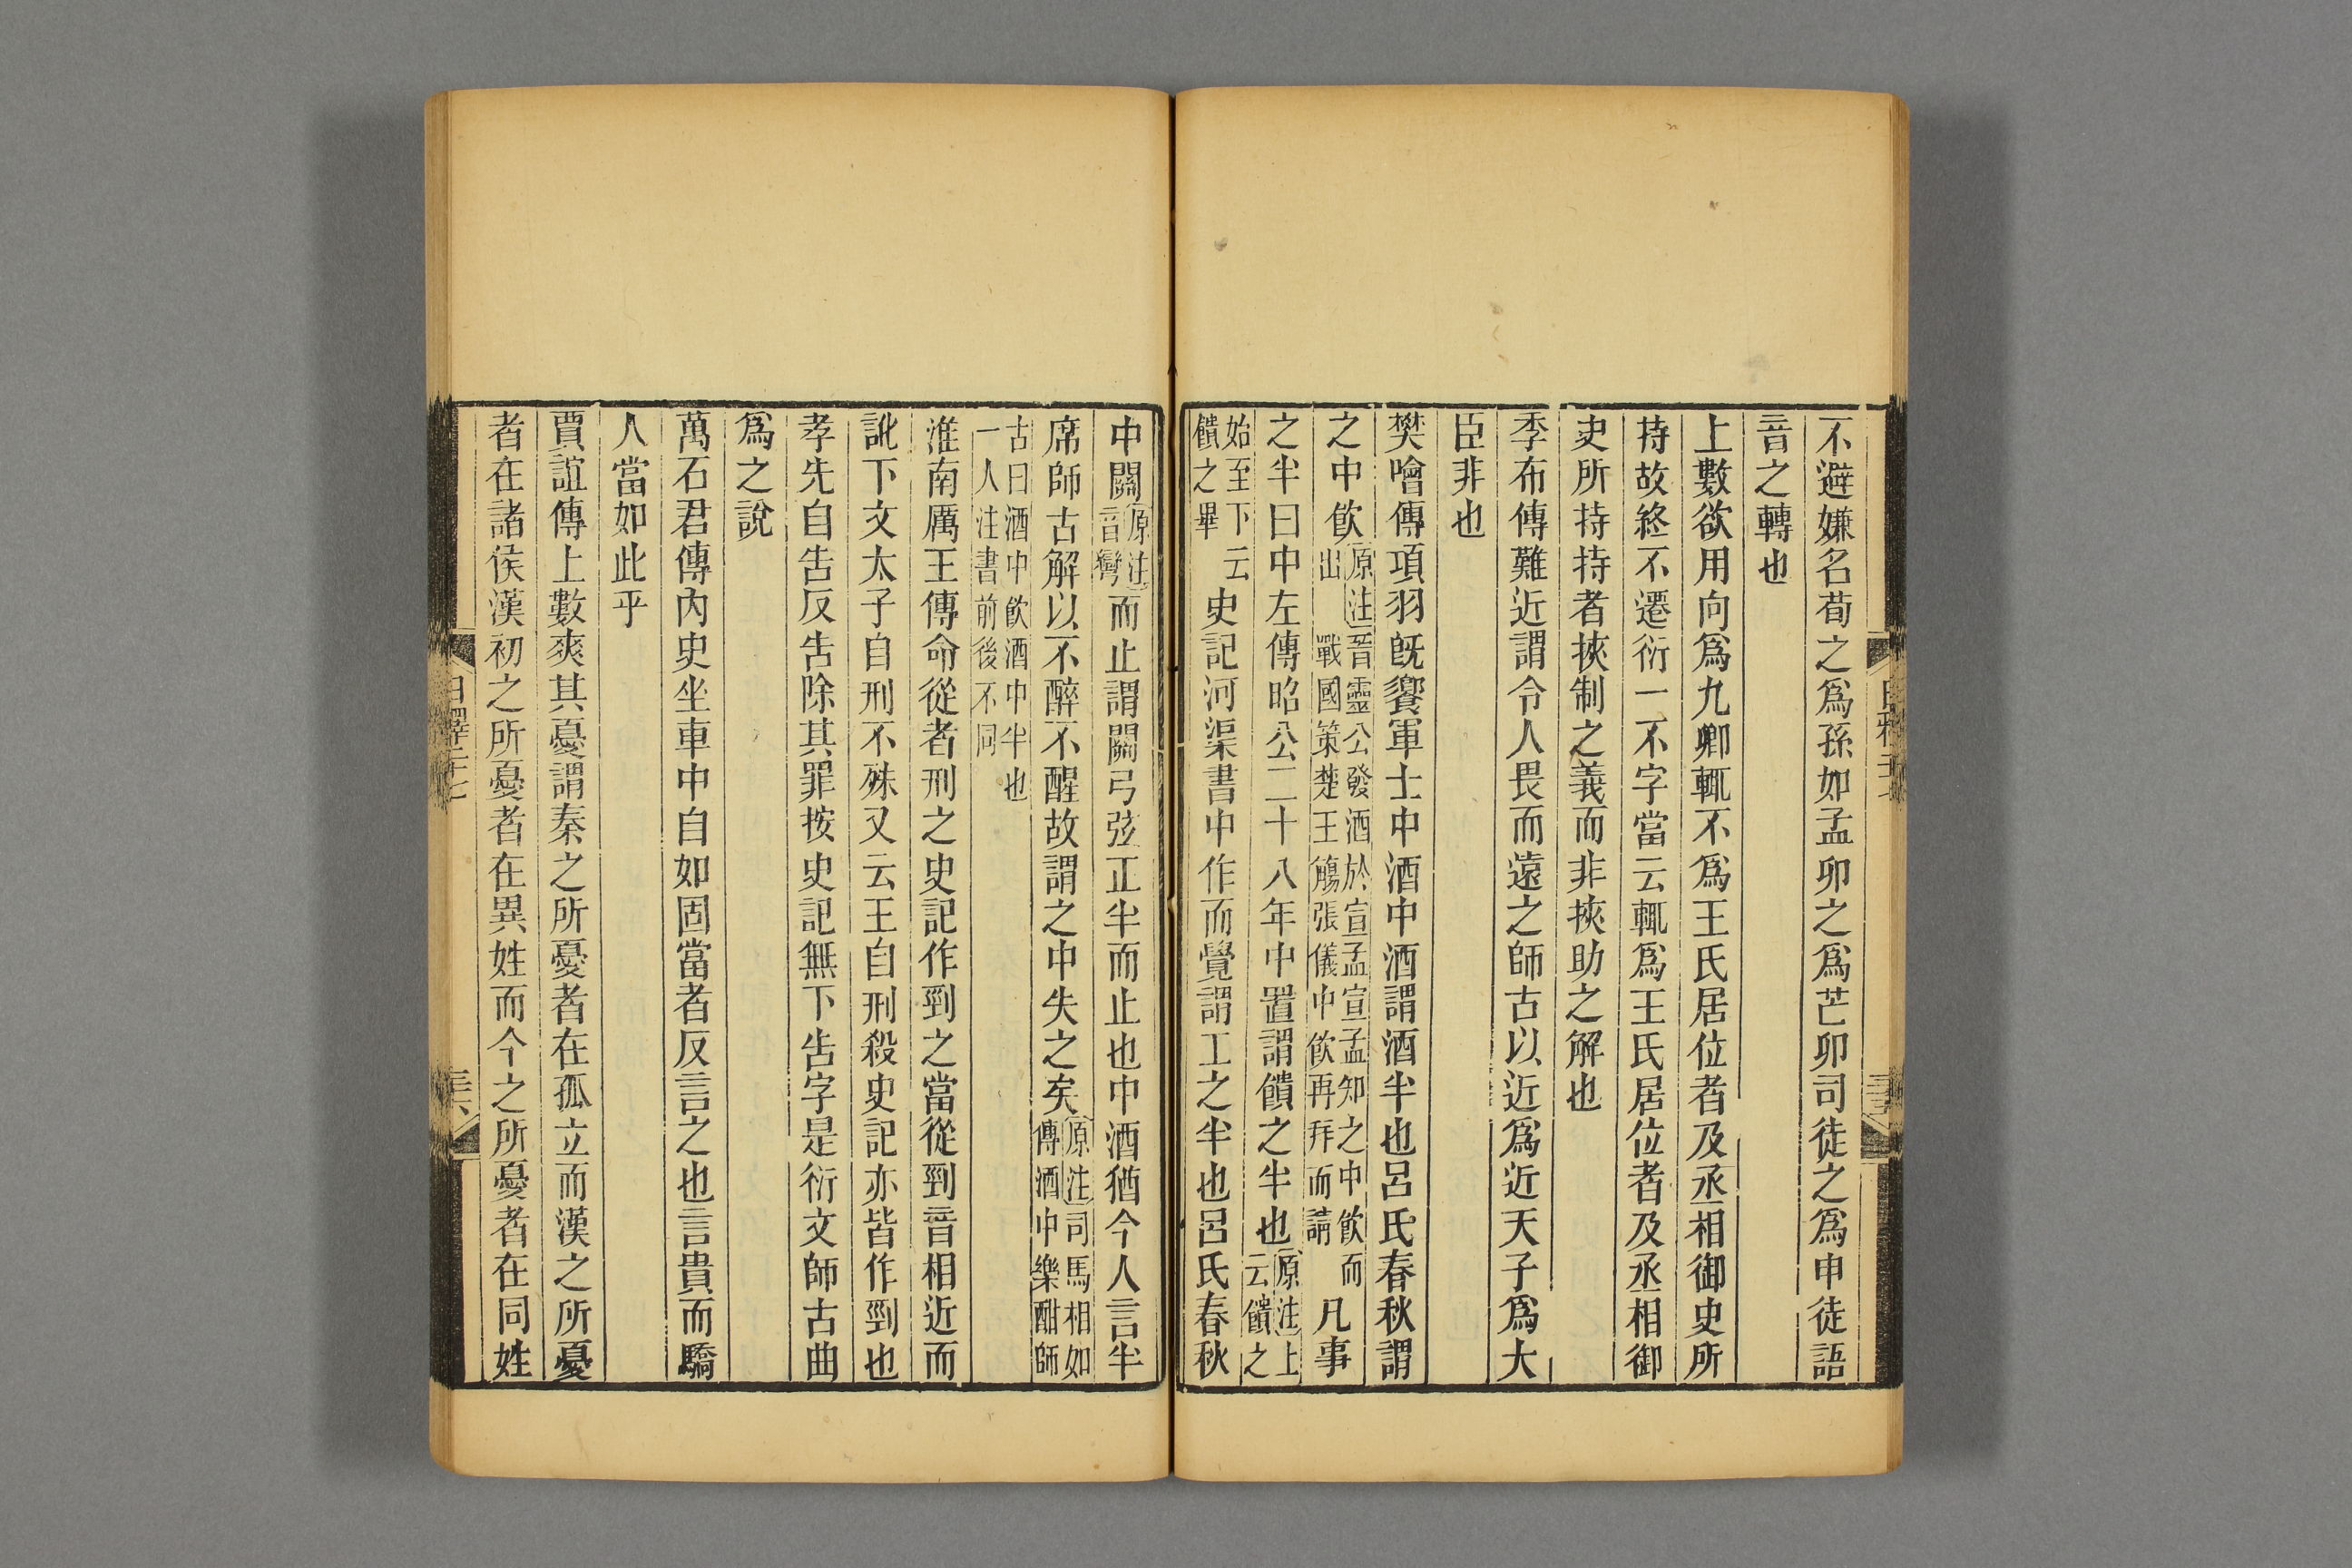 不避嫌名荀之爲孫如孟卯之爲芒卯司徒之爲申徒語
音之轉也
上數欲用向爲九卿輒不爲王氏居位者及丞相御史所
持故終不遷衍一不字當云輒爲王氏居位者及丞相御
史所持持者挾制之義而非挾助之解也
季布傳難近謂令人畏而遠之師古以近爲近天子爲大
臣非也
樊噲傳項羽旣饗軍士中酒中酒謂酒半也呂氏春秋謂
之中飮原注晉靈公發酒於宣孟宣孟知之中飮而出戰國策楚王觴張儀中飮再拜而請凡事
之半曰中左傳昭公二十八年中置謂饋之半也原注上云饋之
始至下云饋之畢史記河渠書中作而覺謂工之半也呂氏春秋
中關原注音彎而止謂關弓弦正半而止也中酒猶今人言半
席師古解以不醉不醒故謂之中失之矣原注司馬相如傳酒中樂酣師
古曰酒中飮酒中半也一人注書前後不同
淮南厲王傳命從者刑之史記作剄之當從剄音相近而
訛下文太子自刑不殊又云王自刑殺史記亦皆作剄也
孝先自告反告除其罪按史記無下告字是衍文師古曲
爲之說
萬石君傳內史坐車中自如固當者反言之也言貴而驕
人當如此乎
賈誼傳上數爽其憂謂秦之所憂者在孤立而漢之所憂
者在諸侯漢初之所憂者在異姓而今之所憂者在同姓